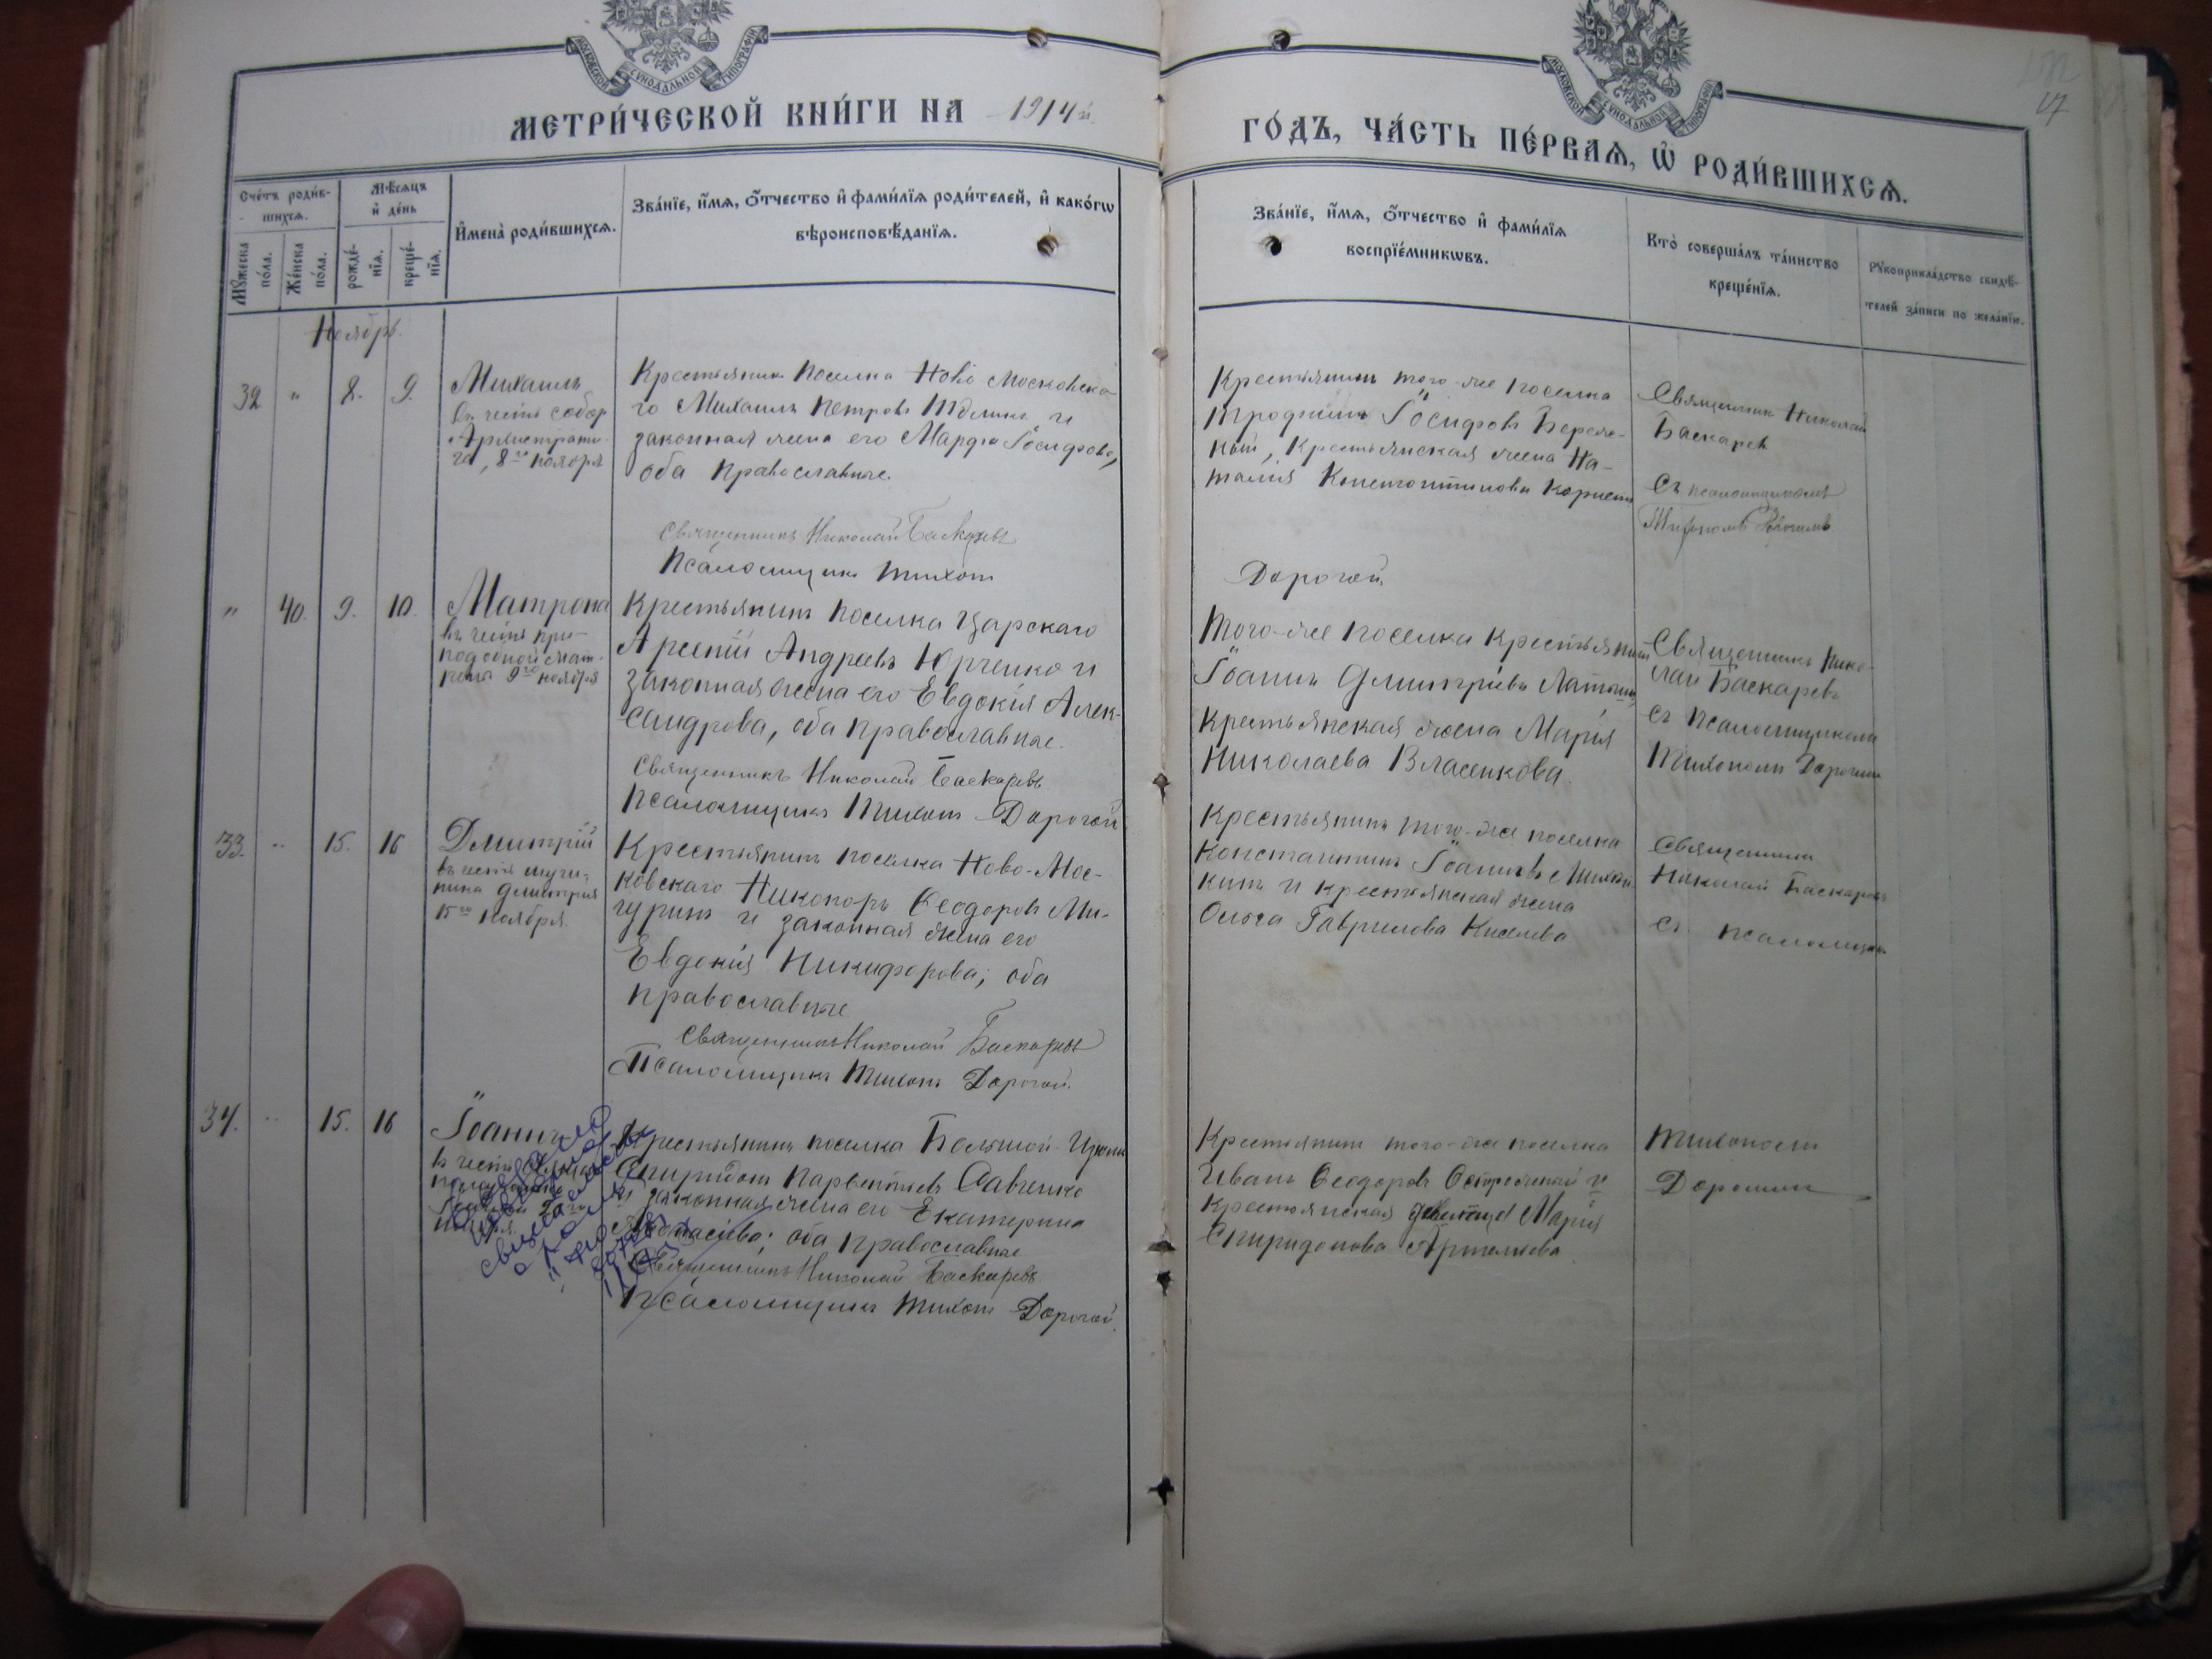 МОСКОВСКОЙ СУНОДАЛЬНОЙ ТИПОГРАФІИ
МОСКОВСКОЙ СУНОДАЛЬНОЙ ТИПОГРАФІИ
МЕТРИ́ЧЕСКОЙ КНИ́ГИ НА 1914 й
ГО́ДЪ, ЧА́СТЬ ПЕ́РВАѦ, Ѡ҆ РОДИ́ВШИХСѦ.
17
Сче́тъ роди́в-
шихсѧ.
Мꙋжеска по́ла.
Же́нска по́ла.
Мѣ́сѧцъ и҆ де́нь
рожде́-нїѧ.
креще́-нїѧ.
И҆мена̀ роди́вшихсѧ.
Зва́нїе, и҆́мѧ, о҆́тчество и҆ фами́лїѧ роди́телей, и҆ како́гѡ
вѣроисповѣ́данїѧ.
Зва́нїе, и҆́мѧ, о҆́тчество и҆ фами́лїѧ
воспрїе́мникѡвъ.
Кто̀ соверша́лъ та́инство
креще́нїѧ.
Рꙋкоприкла́дство свидѣ́-
телей за́писи по жела́нїю.
Ноябрь.
32 " 8. 9.
Михаилъ
въ честь собор
Архистрати-
га, 8го ноября
Крестьянинъ поселка Ново Московска-
го Михаилъ Петровъ и
законная жена его Марфа Іосифова,
оба православные.
Священникъ Николай Баскаревъ
Псаломщикъ Тихонъ
Дорогой.
Крестьянинъ того-же поселка
Трофимъ Іосифовъ
Крестьянская жена На-
талія Константинова
Священникъ Николай
Баскаревъ
Съ псаломщикомъ
Тихономъ
" 40. 9. 10.
Матрона
въ честь пре-
подобной Мат-
роны 9го ноября
Крестьянинъ поселка Царскаго
Арсеній Андреевъ Юрченко и
законная жена его Евдокія Алек-
сандрова, оба православные.
Священникъ Николай Баскаревъ
Псаломщикъ Тихонъ Дорогой
Того-же поселка крестьянинъ
Іоаннъ Дмитріевъ
Крестьянская жена Марія
Николаева Власенкова.
Священникъ Нико-
лай Баскаревъ
съ псаломщикомъ
Тихономъ Дорогимъ
33. " 15. 16
Дмитрій
въ честь муче-
ника Дмитрія
15го ноября.
Крестьянинъ поселка Ново-Мос-
ковскаго Никоноръ Ѳеодоровъ Ми-
гуринъ и законная жена его
Евдокія Никифорова; оба
православные
Священникъ Николай Баскаревъ
Псаломщикъ Тихонъ Дорогой.
Крестьянинъ того-же поселка
Константинъ Іоанновъ
и крестьянская жена
Ольга Гаврилова Киселева
Священникъ
Николай Баскаревъ
съ псаломщик
34. " 15. 16
Іоаннъ
въ честь
Крестьянинъ поселка Большой
Спиридонъ Парѳентіевъ Савченко
и законная жена его Екатерина
оба православные
Священникъ Николай Баскаревъ
Псаломщикъ Тихонъ Дорогой.
Крестьянинъ того-же поселка
Иванъ Ѳеодоровъ и
крестьянская девица Марія
Спиридонова
Тихономъ
Дорогимъ